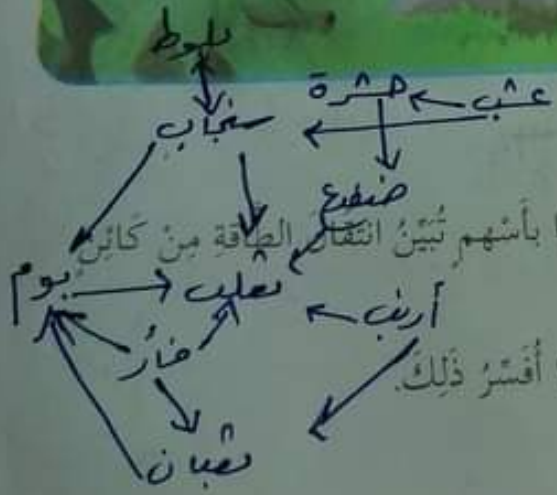 بلوط
عشب حشرة
سنجاب
ضفدع
بأسهمٍ تُبَيِّنُ انتقالَ الطاقةِ مِنْ كَائِنٍ
بوم ثعلب أرنب
فأر
أُفَسِّرُ ذَلِكَ.
ثعبان